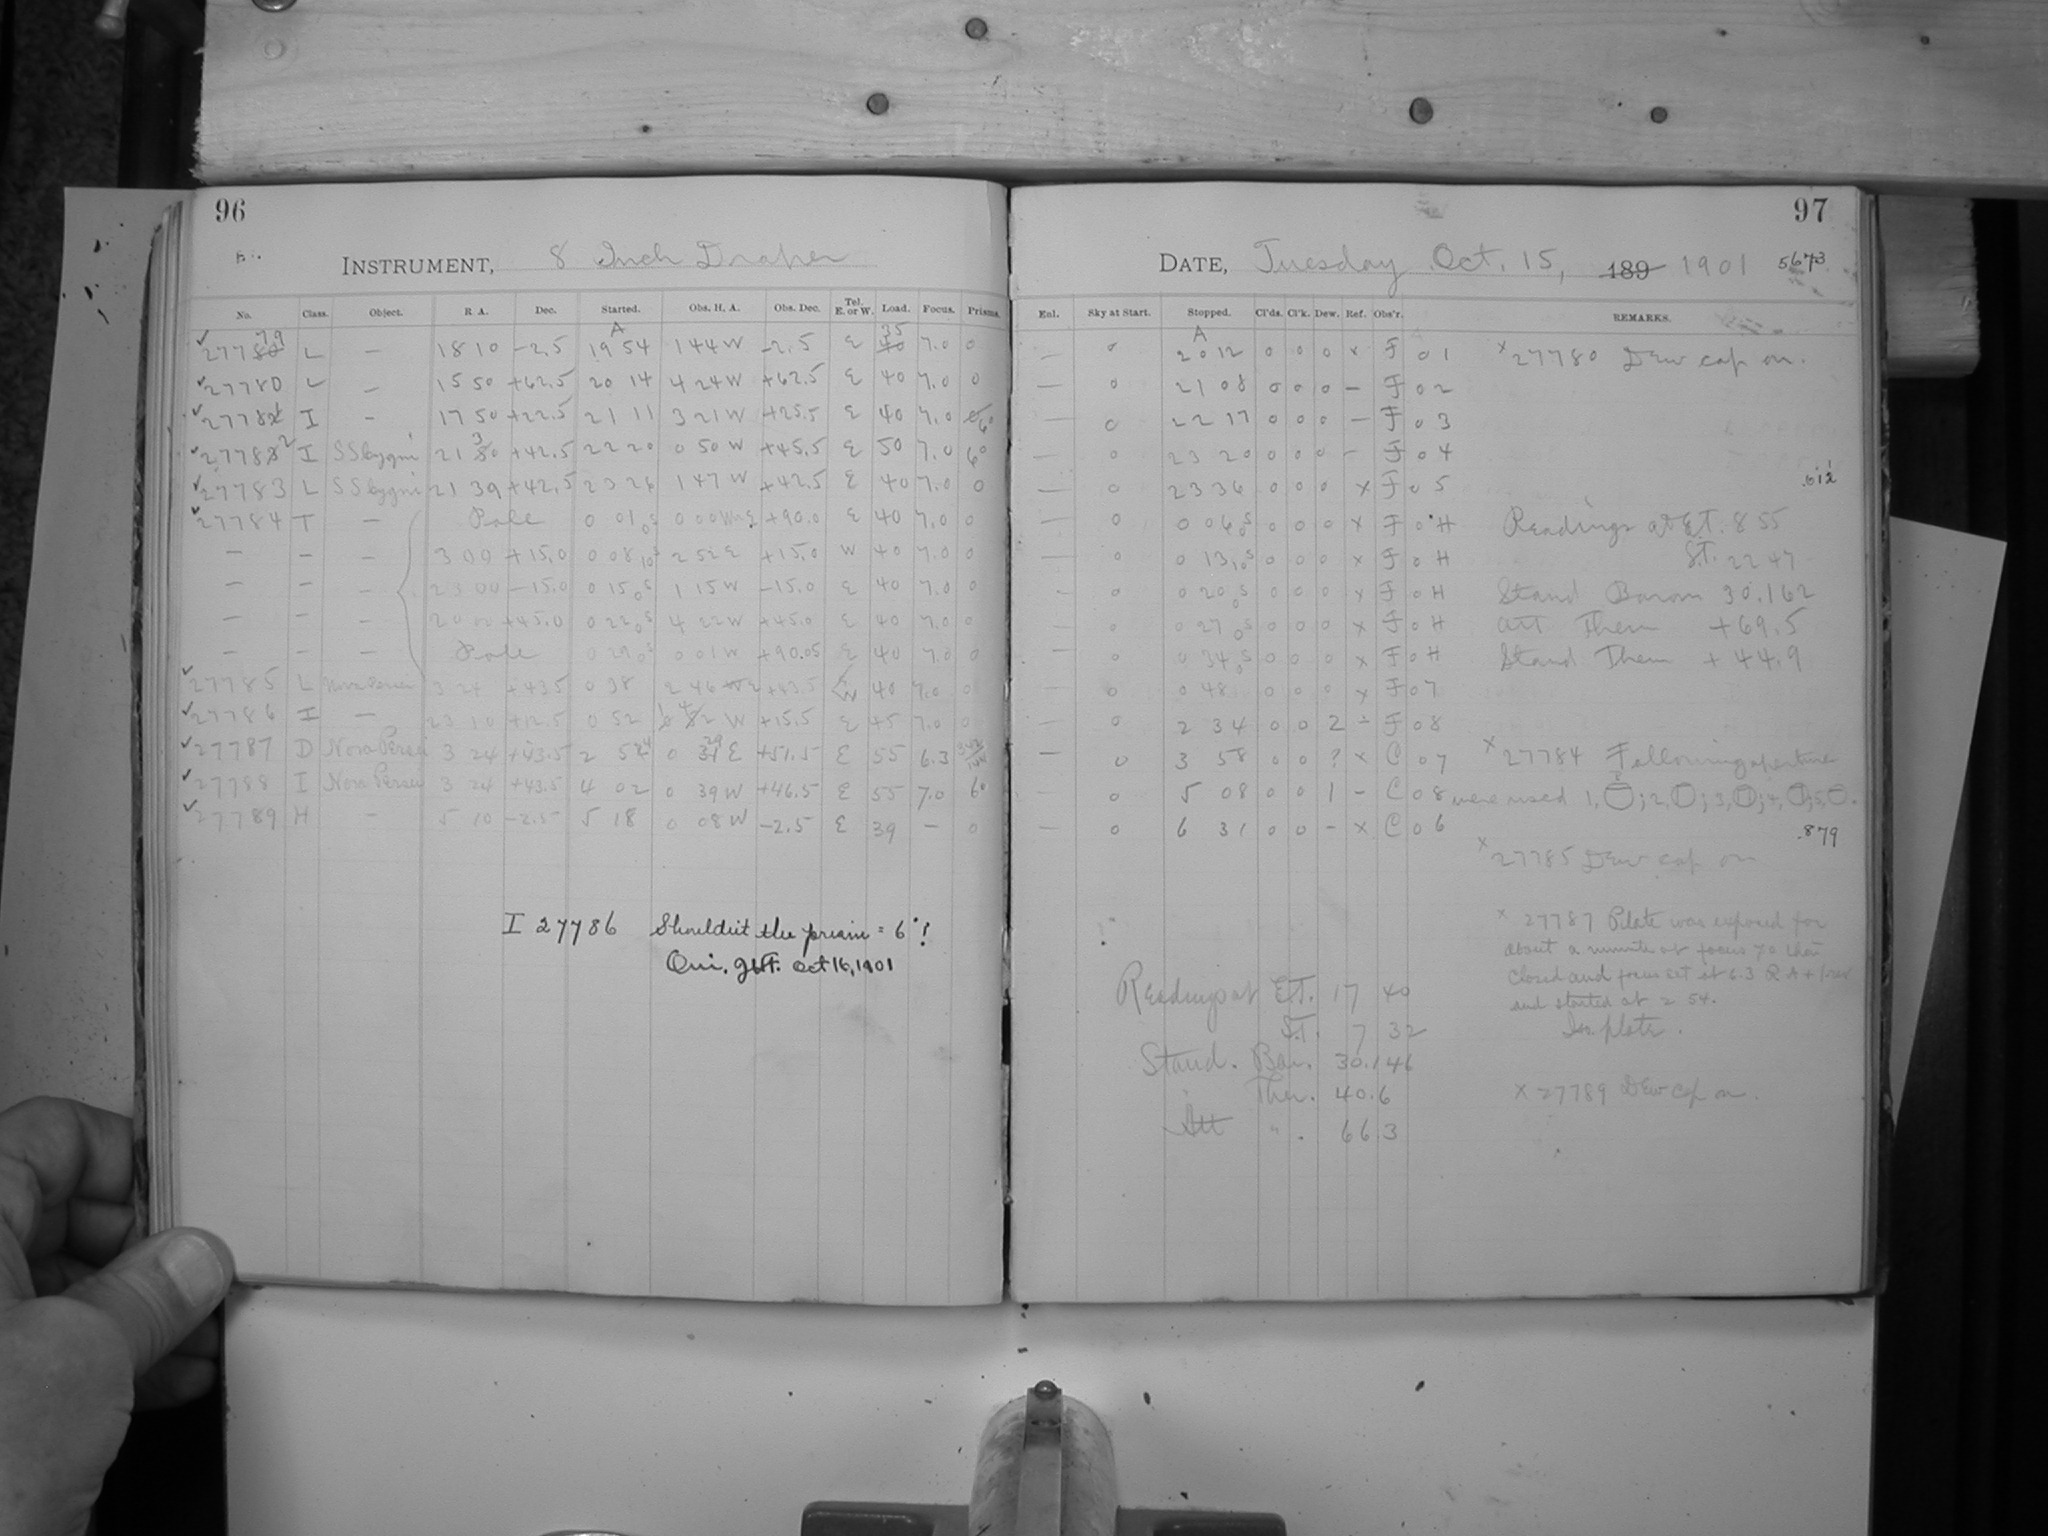 96
INSTRUMENT, 8 Inch Draper
No. Class. Object. R. A. Dec. Started. Obs. H. A. Obs. Dec. Tel. E. or W. Load. Focus. Prisms.
27779 L — 18 10 -2.5 19 54 1 44 W -2.5 E 35 7.0 0
27780 L — 15 50 +62.5 20 14 4 24 W +62.5 E 40 7.0 0
27781 I — 17 50 +22.5 21 11 3 21 W +25.5 E 40 7.0 6°
27782 I SS Cygni 21 30 +42.5 22 20 0 50 W +45.5 E 50 7.0 6°
27783 L SS Cygni 21 39 +42.5 23 26 1 47 W +42.5 E 40 7.0 0
27784 T — Pole 0 01 0s 0 00 +90.0 E 40 7.0 0
— — — 3 00 +15.0 0 08 10s 2 52 E +15.0 W 40 7.0 0
— — — 23 00 -15.0 0 15 0s 1 15 W -15.0 E 40 7.0 0
— — — +45.0 0 22 0s 4 22 W +45.0 E 40 7.0 0
— — — Pole 0 29 0s 0 01 W +90.05 E 40 7.0 0
27785 L Nova Persei 3 24 +43.5 0 38 2 46 E +43.5 W 40 7.0 0
27786 I — 23 10 +12.5 0 52 W +15.5 E 45 7.0 0
27787 D Nova Persei 3 24 +43.5 2 54 0 29 E +51.5 E 55 6.3
27788 I Nova Persei 3 24 +43.5 4 02 0 39 W +46.5 E 55 7.0 6°
27789 H — 5 10 -2.5 5 18 0 08 W -2.5 E 39 — 0
I 27786 Shouldn't the prism = 6°?
Oct 16, 1901
97
DATE, Tuesday Oct. 15, 189 1901 5673
Enl. Sky at Start. Stopped. Cl'ds. Cl'k. Dew. Ref. Obs'r. REMARKS.
— 0 20 12 0 0 0 x F 01 x 27780 Dew cap on.
— 0 21 08 0 0 0 — F 02
— 0 22 17 0 0 0 — F 03
— 0 23 20 0 0 0 — F 04
— 0 23 36 0 0 0 x F 05 .012
— 0 0 06 0s 0 0 0 x F 0 H Readings at E.T. 8 55
— 0 0 13 10s 0 0 0 x F 0 H S.T. 22 47
— 0 0 20 0s 0 0 0 x F 0 H Stand Barom 30.162
— 0 0 27 0s 0 0 0 x F 0 H Att Them +69.5
— 0 0 34 0s 0 0 0 x F 0 H Stand Them +44.9
— 0 0 48 0 0 0 x F 07
— 0 2 34 0 0 2 — F 08
— 0 3 58 0 0 ? x C 07 x 27784 Following aperture
— 0 5 08 0 0 1 — C 08 were used 1, ; 2, ; 3, ; 4, ; 5, .
— 0 6 31 0 0 — x C 06 .879
x 27785 Dew cap on
x 27787 Plate was exposed for
about a minute at focus 70 then
closed and focus set at 6.3 R A +
and started at 2 54.
Iso. plate.
Readings at E.T. 17 40
S.T. 7 32
Stand. Bar. 30.146
Ther. 40.6
Att " . 66 3
x 27789 Dew cap on.